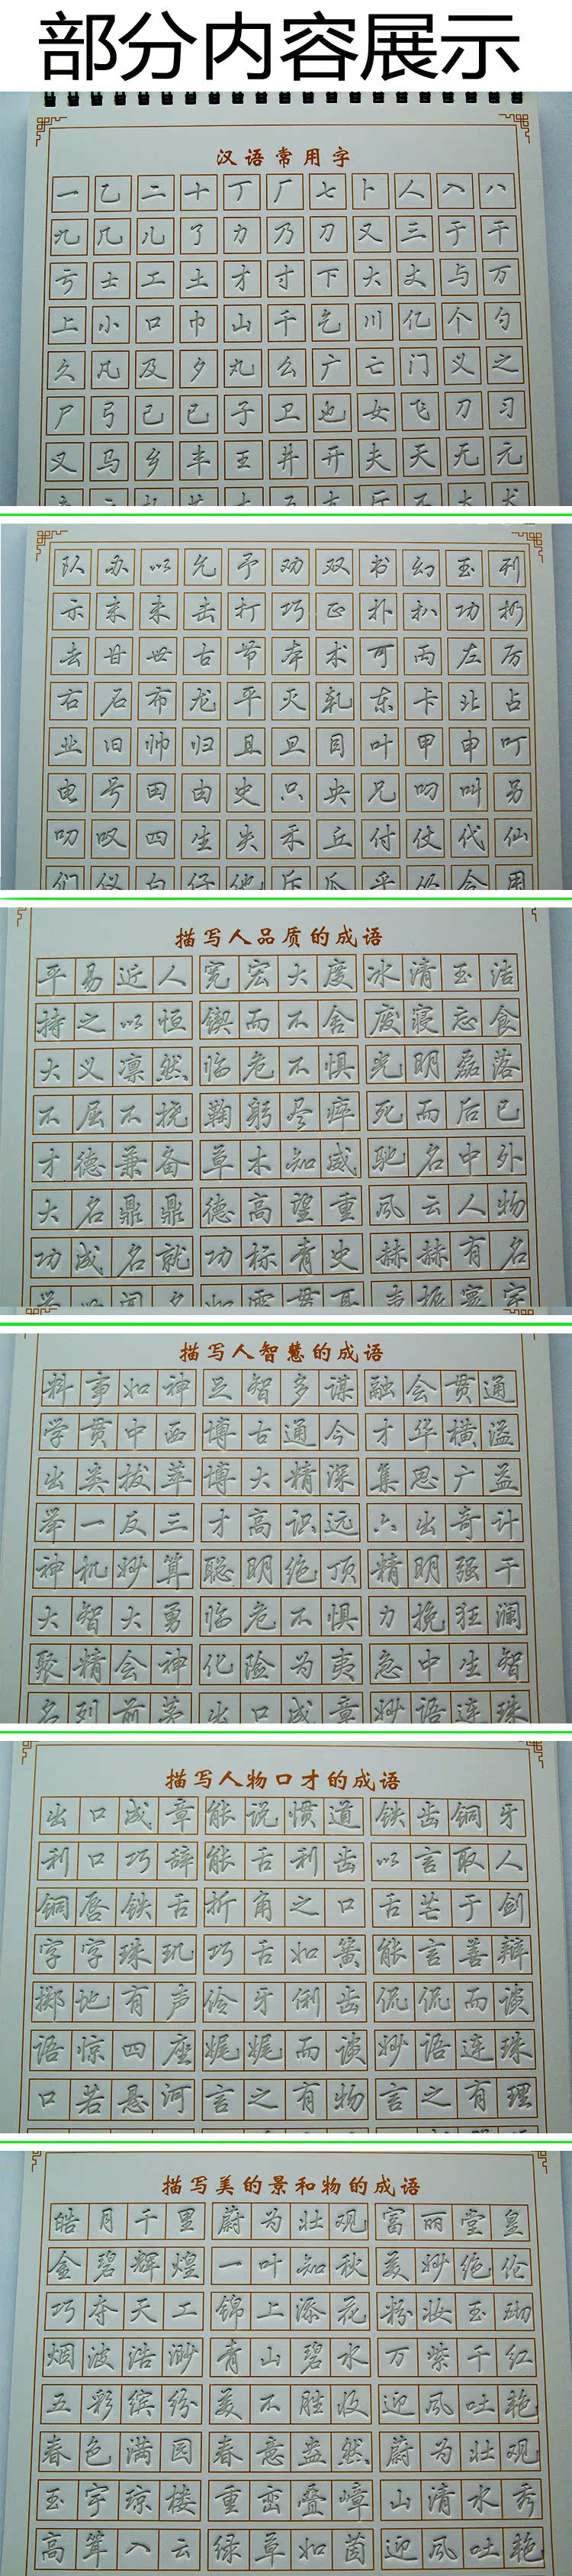 部分内容展示
汉语常用字
一乙二十丁厂七卜人入八
九几儿了力乃刀又三于干
亏士工土才寸下大丈与万
上小口巾山千乞川亿个勺
久凡及夕丸么广亡门义之
尸弓己已子卫也女飞刃习
叉马乡丰王井开夫天无元
队办以允予劝双书幻玉刊
示末未击打巧正扑扒功扔
去甘世古节本术可丙左厉
右石布龙平灭轧东卡北占
业旧帅归且旦目叶甲申叮
电号田由史只央兄叼叫另
叨叹四生失禾丘付仗代仙
描写人品质的成语
平易近人 宽宏大度 冰清玉洁
持之以恒 锲而不舍 废寝忘食
大义凛然 临危不惧 光明磊落
不屈不挠 鞠躬尽瘁 死而后已
才德兼备 草木知威 驰名中外
大名鼎鼎 德高望重 风云人物
功成名就 功标青史 赫赫有名
描写人智慧的成语
料事如神 足智多谋 融会贯通
学贯中西 博古通今 才华横溢
出类拔萃 博大精深 集思广益
举一反三 才高识远 六出奇计
神机妙算 聪明绝顶 精明强干
大智大勇 临危不惧 力挽狂澜
聚精会神 化险为夷 急中生智
名列前茅 出口成章 妙语连珠
描写人物口才的成语
出口成章 能说惯道 铁齿铜牙
利口巧辞 能舌利齿 以言取人
铜唇铁舌 折角之口 舌芒于剑
字字珠玑 巧舌如簧 能言善辩
掷地有声 伶牙俐齿 侃侃而谈
语惊四座 娓娓而谈 妙语连珠
口若悬河 言之有物 言之有理
描写美的景和物的成语
皓月千里 蔚为壮观 富丽堂皇
金碧辉煌 一叶知秋 美妙绝伦
巧夺天工 锦上添花 粉妆玉砌
烟波浩渺 青山碧水 万紫千红
五彩缤纷 美不胜收 迎风吐艳
春色满园 春意盎然 蔚为壮观
玉宇琼楼 重峦叠嶂 山清水秀
高耸入云 绿草如茵 迎风吐艳